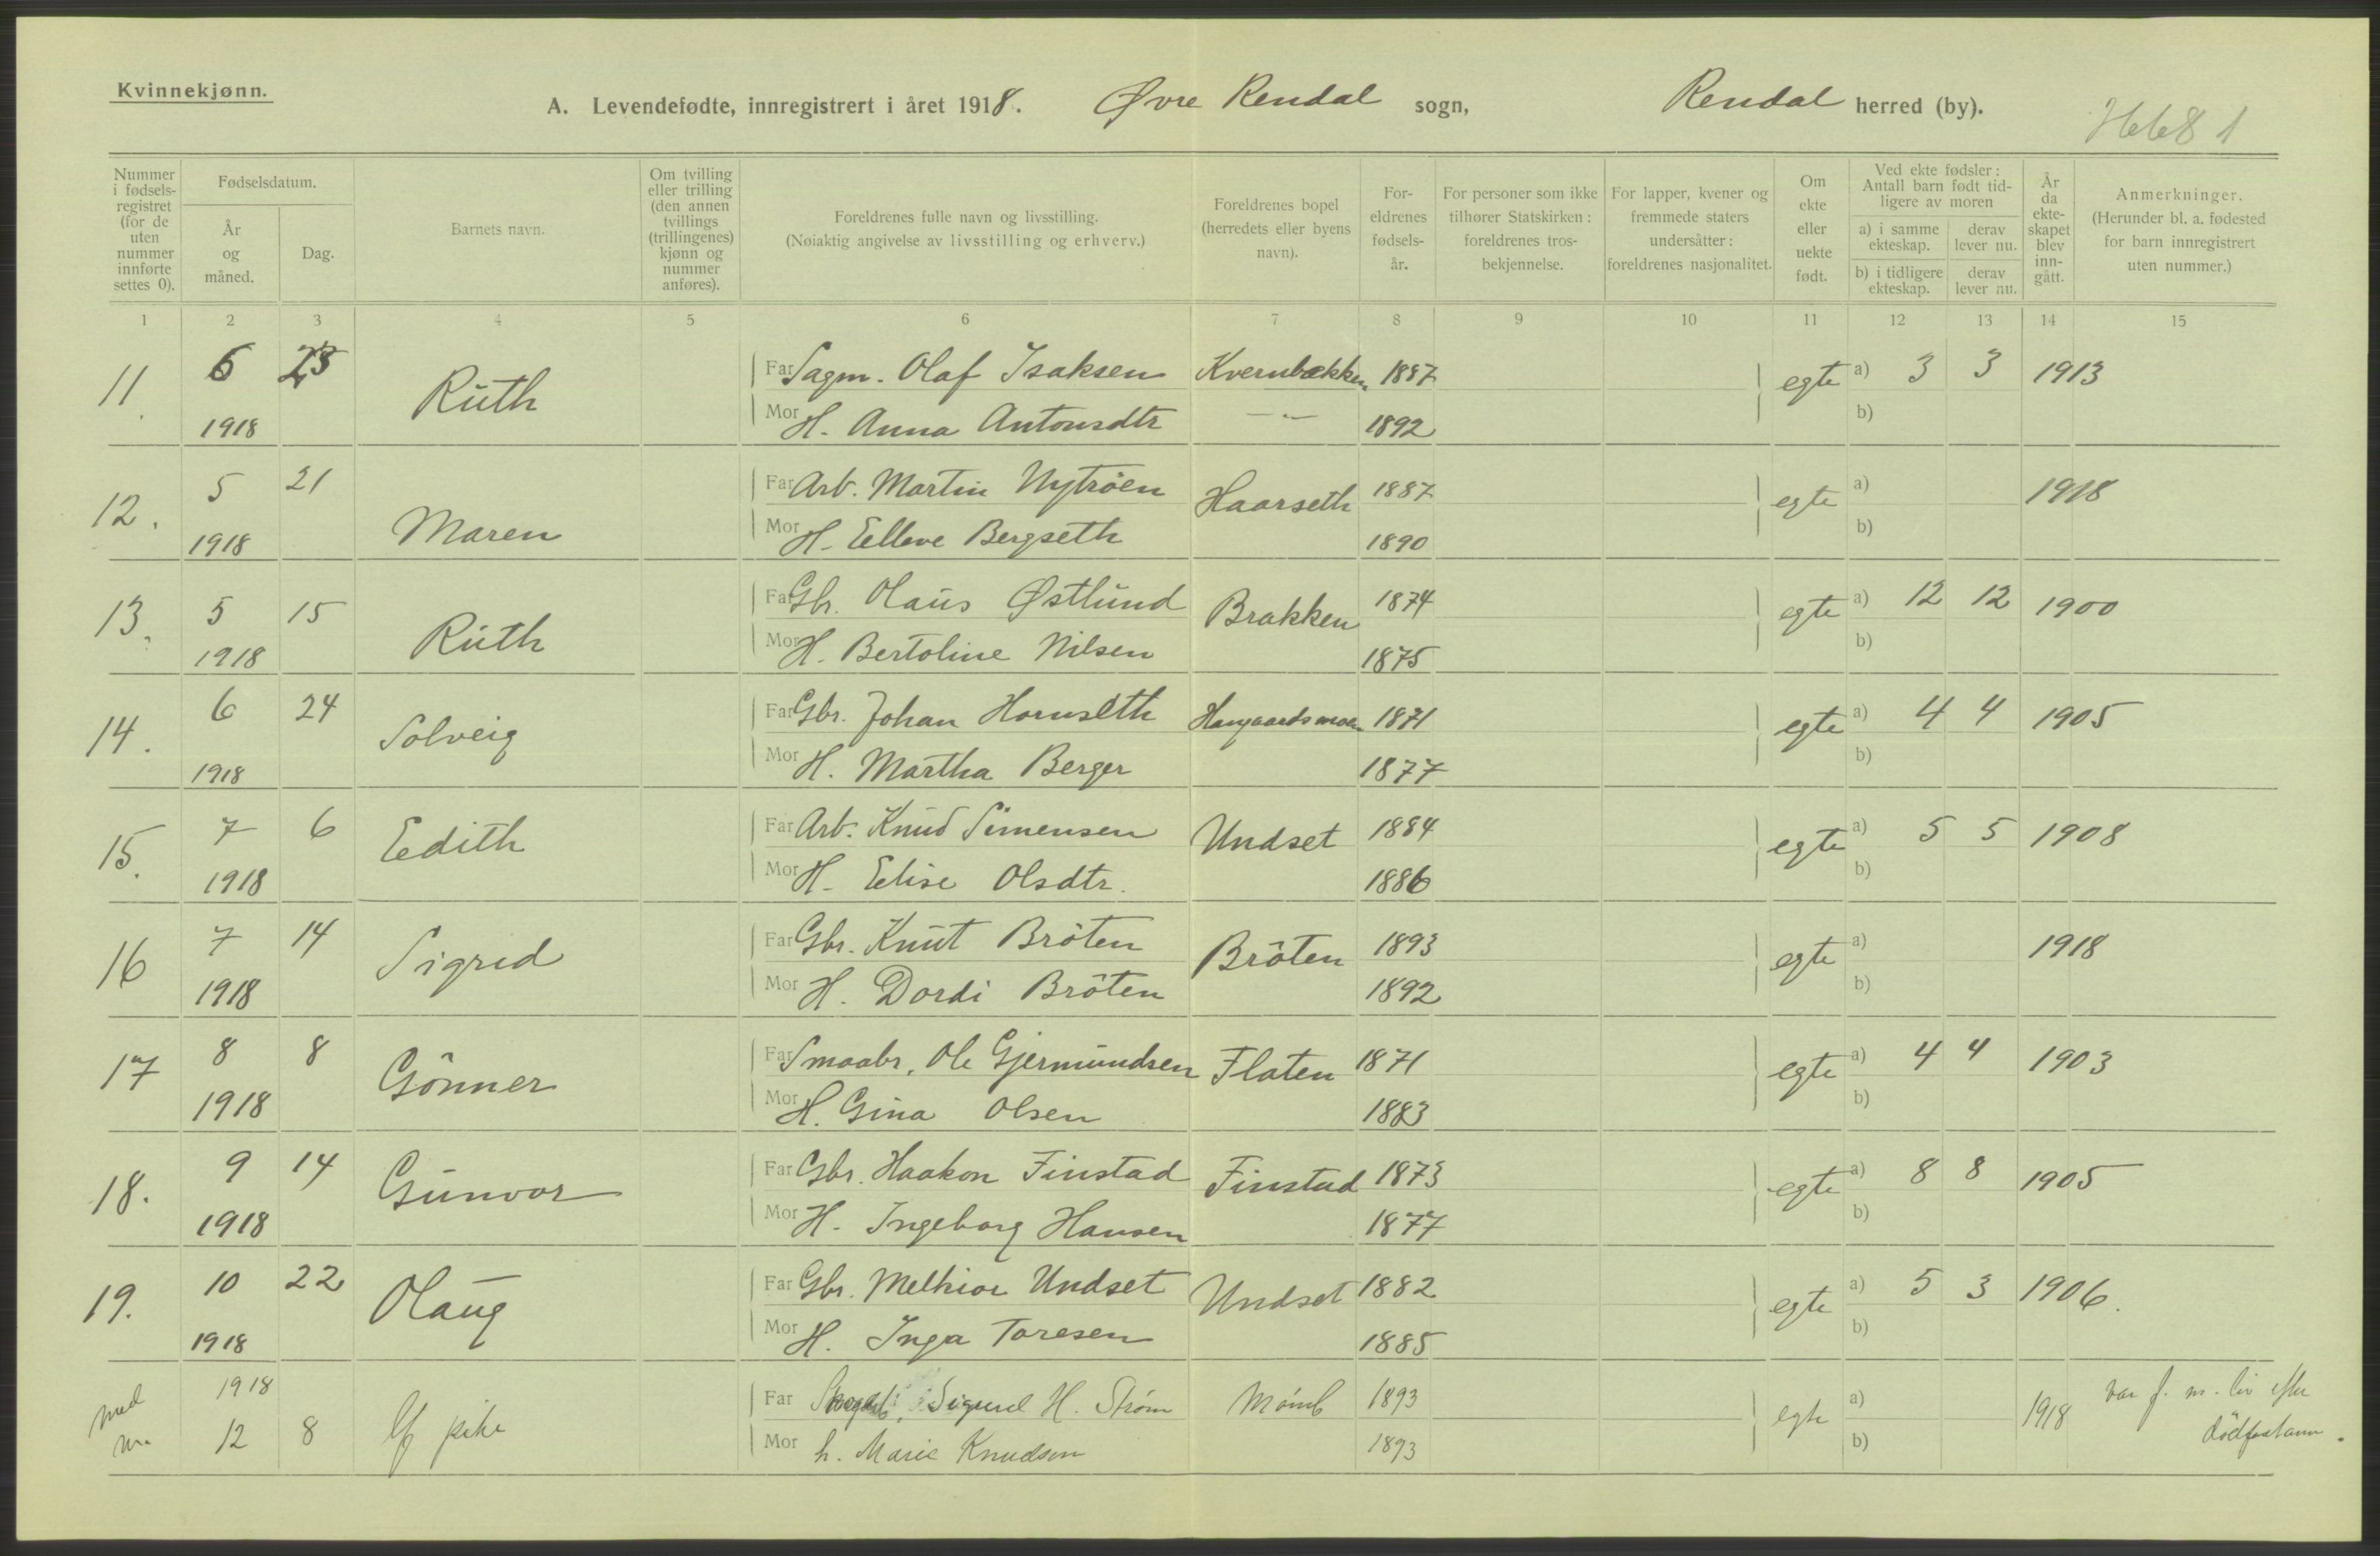 Kvinnekjønn.
A. Levendefødte, innregistrert i året 1918. Øvre Rendal sogn, Rendal herred (by).
Nummer i fødselsregistret (for de uten nummer innførte settes 0).
Fødselsdatum.
År og måned.
Dag.
Barnets navn.
Om tvilling eller trilling (den annen tvillings (trillingenes) kjønn og nummer anføres).
Foreldrenes fulle navn og livsstilling.
(Nøiaktig angivelse av livsstilling og erhverv.)
Foreldrenes bopel (herredets eller byens navn).
Foreldrenes fødselsår.
For personer som ikke tilhører Statskirken: foreldrenes trosbekjennelse.
For lapper, kvener og fremmede staters undersåtter: foreldrenes nasjonalitet.
Om ekte eller uekte født.
Ved ekte fødsler: Antall barn født tidligere av moren
a) i samme ekteskap. derav lever nu.
b) i tidligere ekteskap. derav lever nu.
År da ekteskapet blev inngått.
Anmerkninger.
(Herunder bl. a. fødested for barn innregistrert uten nummer.)
1 2 3 4 5 6 7 8 9 10 11 12 13 14 15
11. 6 Ruth Far Sagm. Olaf Isaksen Kvernbækken 1887 egte a) 3 3 1913
1918 Mor H. Anna Antonsdtr — " — 1892 b)
12. 5 21 Maren Far Arb. Martin Nytröen Haarseth 1887 egte a) 1918
1918 Mor H. Elleve Bergseth 1890 b)
13. 5 15 Ruth Far Gbr. Olaus Østlund Brækken 1874 egte a) 12 12 1900
1918 Mor H. Bertoline Nilsen 1875 b)
14. 6 24 Solveig Far Gbr. Johan Hornseth 1871 egte a) 4 4 1905
1918 Mor H. Martha Berger 1877 b)
15. 7 6 Edith Far Arb. Knud Simensen Undset 1884 egte a) 5 5 1908
1918 Mor H. Elise Olsdtr. 1886 b)
16 7 14 Sigrid Far Gbr. Knut Bröten Bröten 1893 egte a) 1918
1918 Mor H. Dordi Bröten 1892 b)
17 8 8 Gönner Far Smaabr. Ole Gjermundsen Flaten 1871 egte a) 4 4 1903
1918 Mor H. Gina Olsen 1883 b)
18. 9 14 Gunvor Far Gbr. Haakon Finstad Finstad 1873 egte a) 8 8 1905
1918 Mor H. Ingeborg Hansen 1877 b)
19. 10 22 Olaug Far Gbr. Melkior Undset Undset 1882 egte a) 5 3 1906.
1918 Mor H. Inga Toresen 1885 b)
1918 Far Sigurd H. Strøm 1893 egte a) 1918
12 8 pike Mor h. Marie Knudsen 1893 b)